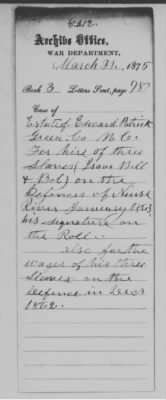 5212.
Archive Office,
WAR DEPARTMENT,
March 31, 1875
Book 3 Letters Sent, page 98
Case of
Estate of Edward Patrick
Green Co. N. Co.
For hire of three
Slaves (Isaac Bill
& Bob) on the
Defences of Neuse
River January 1863
his signature on
the Roll.
also for the
wages of his three
Slaves on the
Defence in Decr
1862.